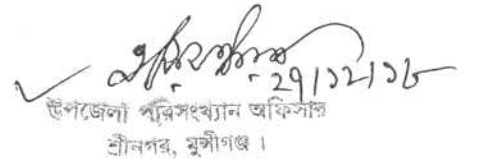 ২৭/১২/১৮
উপজেলা পরিসংখ্যান অফিসার
শ্রীনগর, মুন্সীগঞ্জ ।